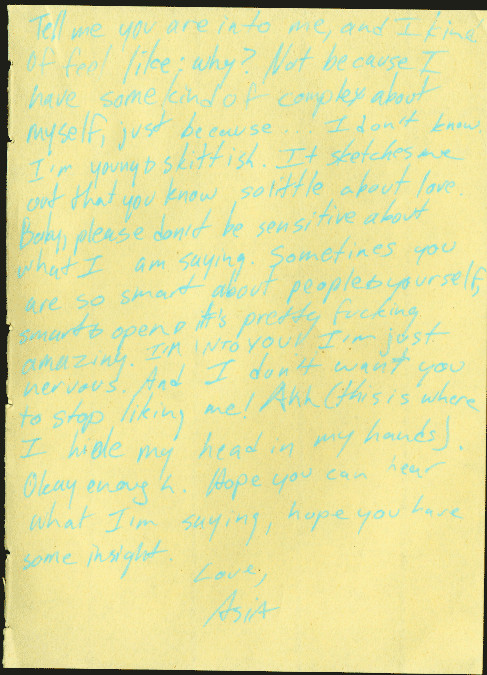 Tell me you are into me, and I kind
Of feel like; why? Not because I
have some kind of complex about
myself, just because... I don't know.
I'm young & skittish. It sketches me
out that you know so little about love.
Baby, please don't be sensitive about
what I am saying. Sometimes you
are so smart about people & yourself,
smart & open & it's pretty fucking
amazing. I'm INTO YOU! I'm just
nervous. And I don't want you
to stop liking me! Ahh (this is where
I hide my head in my hands).
Okay enough. Hope you can hear
what I'm saying, hope you have
some insight.
Love,
AsiA